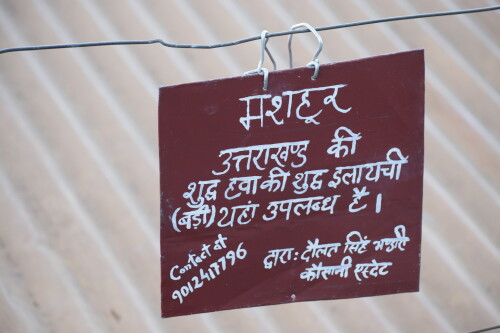 मशहूर
उत्तराखण्ड की
शुद्ध हवा की शुद्ध इलायची
(बड़ी) यहां उपलब्ध है।
Contact at
9012417796
द्वारा: दौलत सिंह
कौसानी एस्टेट